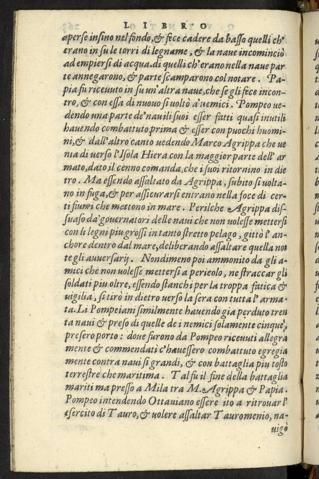 LIBRO
aperse insino nel fondo, & fece cadere da basso quelli ch'
erano in su le torri di legname, & la naue incominciò
ad empiersi di acqua. di quelli ch'erano nella naue par
te annegarono, & parte scamparono col notare. Pa
pia fu riceuuto in su un'altra naue, che se gli fece incon-
tro, & con essa di nuouo si uoltò a'nemici. Pompeo ue-
dendo una parte de'nauili suoi esser fatti quasi inutili
hauendo combattuto prima & esser con puochi huomi
ni, & dall'altro canto uedendo Marco Agrippa che ue
nia di uerso l'Isola Hiera con la maggior parte dell'ar
mato, dato il cenno comanda, che i suoi ritornino in die
tro. Ma essendo assaltato da Agrippa, subito si uolta-
no in fuga, & per assicurarsi entrano nella foce di cer-
ti fiumi che mettono in mare. Perilche Agrippa dis-
suaso da'gouernatori delle naui che non uolesse mettersi
con li legni piu grossi in tanto stretto pelago, gittò l'an-
chore dentro dal mare, deliberando assaltare quella not
te gli auuersarij. Nondimeno poi ammonito da gli a-
mici che non uolesse mettersi a pericolo, ne straccar gli
soldati piu oltre, essendo stanchi per la troppa fatica &
uigilia, si tirò in dietro uerso la sera con tutta l'arma-
ta. La Pompeiani similmente hauendo gia perduto tren
ta naui & preso di quelle de i nemici solamente cinque,
presero porto: doue furono da Pompeo riceuuti allegra
mente & commendati c'hauessero combattuto egregia
mente contra naui sì grandi, & con battaglia piu tosto
terrestre che maritima. Tal fu il fine della battaglia
mariti ma presso a Mila tra M. Agrippa & Papia.
Pompeo intendendo Ottauiano essere ito a ritrouar l'
esercito di Tauro, & uolere assaltar Tauromenio, na-
uigò